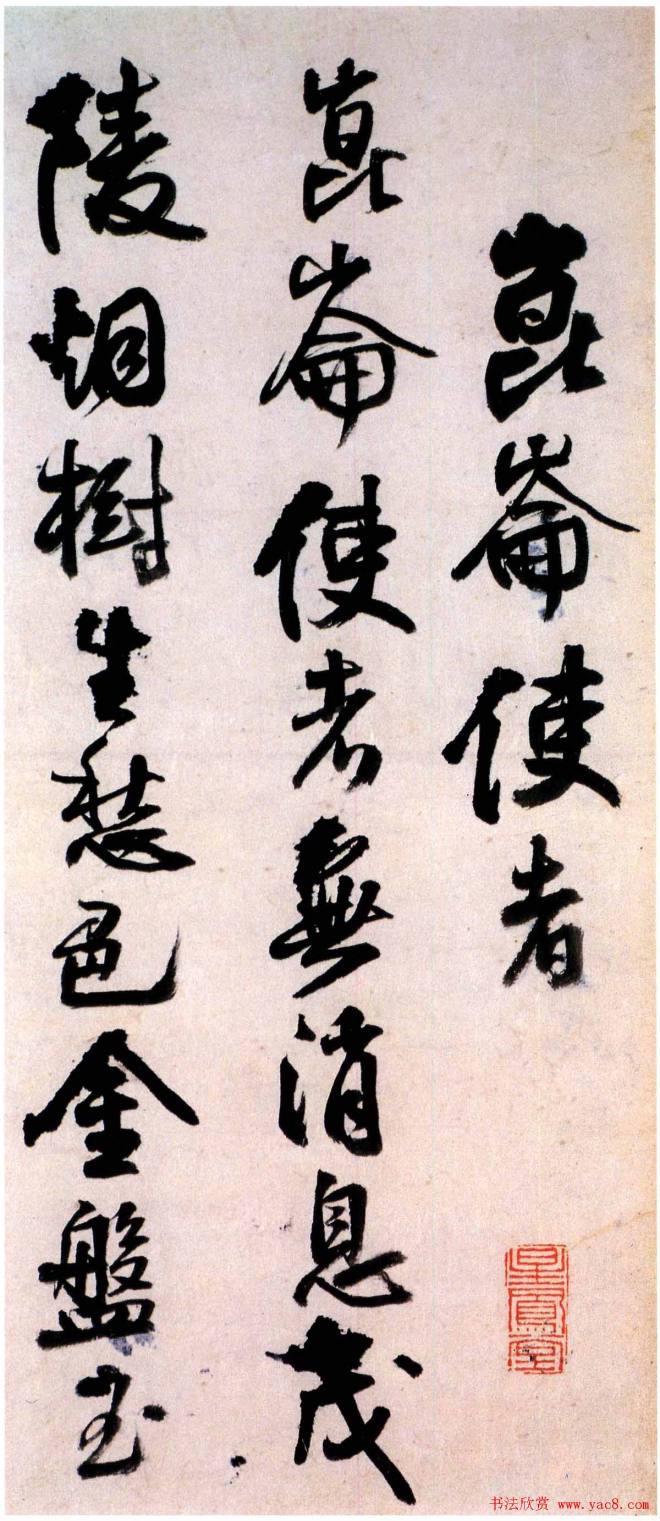 崑崙使者
崑崙使者無消息茂
陵烟樹生愁色金盤玉
书法欣赏 www.yac8.com